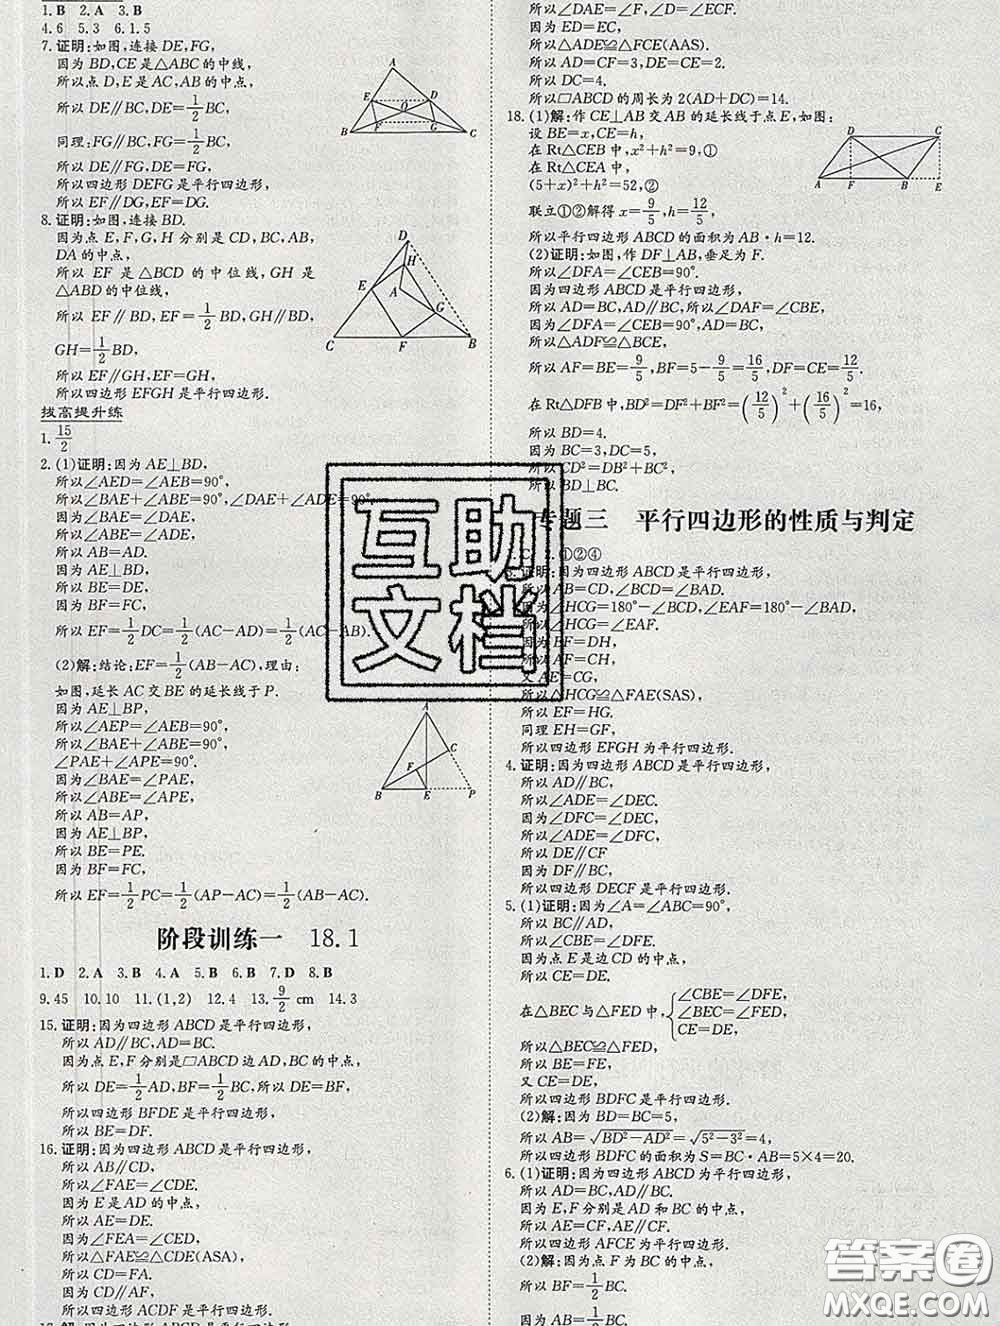 1.B 2.A 3.B
4.6 5.3 6.1.5
7.证明:如图,连接 DE,FG,
因为 BD,CE 是△ABC 的中线,
所以点 D,E 是 AC,AB 的中点,
所以 DE∥BC,DE=1/2BC,
同理:FG∥BC,FG=1/2BC,
所以 DE∥FG,DE=FG,
所以四边形 DEFG 是平行四边形,
所以 EF∥DG,EF=DG.
8.证明:如图,连接 BD.
因为点 E,F,G,H 分别是 CD,BC,AB,
DA 的中点,
所以 EF 是 △BCD 的中位线,GH 是
△ABD 的中位线,
所以 EF∥BD,EF=1/2BD,GH∥BD,
GH=1/2BD,
所以 EF∥GH,EF=GH,
所以四边形 EFGH 是平行四边形.
拔高提升练
1.15/2
2.(1)证明:因为 AE⊥BD,
所以∠AED=∠AEB=90°,
所以∠BAE+∠ABE=90°,∠DAE+∠ADE=90°,
因为∠BAE=∠DAE,
所以∠ABE=∠ADE,
所以 AB=AD.
因为 AE⊥BD,
所以 BE=DE.
因为 BF=FC,
所以 EF=1/2DC=1/2(AC-AD)=1/2(AC-AB).
(2)解:结论:EF=1/2(AB-AC),理由:
如图,延长 AC 交 BE 的延长线于 P.
因为 AE⊥BP,
所以∠AEP=∠AEB=90°,
所以∠BAE+∠ABE=90°,
∠PAE+∠APE=90°.
因为∠BAE=∠PAE,
所以∠ABE=∠APE,
所以 AB=AP,
因为 AE⊥BP,
所以 BE=PE.
因为 BF=FC,
所以 EF=1/2PC=1/2(AP-AC)=1/2(AB-AC).
A
E
D
O
F
G
B
C
D
H
E
A
G
C
F
B
A
C
F
B
E
P
阶段训练一 18.1
1.D 2.A 3.B 4.A 5.B 6.B 7.D 8.B
9.45 10.10 11.(1,2) 12.4 13.9/2 cm 14.3
15.证明:因为四边形 ABCD 是平行四边形,
所以 AD∥BC,AD=BC.
因为点 E,F 分别是□ABCD 边 AD,BC 的中点,
所以 DE=1/2AD,BF=1/2BC,所以 DE=BF,
所以四边形 BFDE 是平行四边形,
所以 BE=DF.
16.证明:因为四边形 ABCD 是平行四边形,
所以 AB∥CD,
所以∠FAE=∠CDE.
因为 E 是 AD 的中点,
所以 AE=DE.
因为∠FEA=∠CED,
所以△FAE≌△CDE(ASA),
所以 CD=FA.
所以四边形 ACDF 是平行四边形.
所以∠DAE=∠F,∠D=∠ECF.
因为 ED=EC,
所以△ADE≌△FCE(AAS).
所以 AD=CF=3,DE=CE=2.
所以 DC=4.
所以□ABCD 的周长为 2(AD+DC)=14.
18.(1)解:作 CE⊥AB 交 AB 的延长线于点 E,如图:
设 BE=x,CE=h,
在 Rt△CEB 中,x²+h²=9,①
在 Rt△CEA 中,
(5+x)²+h²=52,②
联立①②解得 x=9/5,h=12/5,
所以平行四边形 ABCD 的面积为 AB·h=12.
(2)证明:如图,作 DF⊥AB,垂足为 F.
所以∠DFA=∠CEB=90°.
因为四边形 ABCD 是平行四边形,
所以 AD=BC,AD∥BC,所以∠DAF=∠CBE,
因为∠DFA=∠CEB=90°,AD=BC,
所以△ADF≌△BCE,
所以 AF=BE=9/5,BF=5-9/5=16/5,DF=CE=12/5.
在 Rt△DFB 中,BD²=DF²+BF²=(12/5)²+(16/5)²=16,
所以 BD=4.
因为 BC=3,DC=5,
所以 CD²=DB²+BC²,
所以 BD⊥BC.
D
C
A
F
B
E
专题三 平行四边形的性质与判定
①②④
证明:因为四边形 ABCD 是平行四边形,
所以 AB=CD,∠BCD=∠BAD,
因为∠HCG=180°-∠BCD,∠EAF=180°-∠BAD,
所以∠HCG=∠EAF.
因为 BF=DH,
所以 AF=CH,
又 AE=CG,
所以△HCG≌△FAE(SAS),
所以 EF=HG.
同理 EH=GF,
所以四边形 EFGH 为平行四边形.
4.证明:因为四边形 ABCD 是平行四边形,
所以 AD∥BC,
所以∠ADE=∠DEC.
因为∠DFC=∠DEC,
所以∠ADE=∠DFC,
所以 DE∥CF
因为 DF∥BC,
所以四边形 DECF 是平行四边形.
5.(1)证明:因为∠A=∠ABC=90°,
所以 BC∥AD,
所以∠CBE=∠DFE.
因为点 E 是边 CD 的中点,
所以 CE=DE.
在△BEC 与△FED 中,{∠CBE=∠DFE,
∠BEC=∠FED,
CE=DE,
所以△BEC≌△FED,
所以 BE=FE,
又 CE=DE,
所以四边形 BDFC 是平行四边形.
(2)解:因为 BD=BC=5,
所以 AB=√(BD²-AD²)=√(5²-3²)=4,
所以四边形 BDFC 的面积为 S=BC·AB=5×4=20.
6.(1)证明:因为四边形 ABCD 为平行四边形,
所以 AD=BC,AD∥BC.
因为 E,F 分别是 AD 和 BC 的中点,
所以 AE=CF,AE∥CF.
所以四边形 AFCE 为平行四边形.
(2)解:因为点 F 为 BC 的中点,
所以 BF=1/2BC.
因为 AB=1/2BC,
互助
文档
答案圈
MXQE.COM